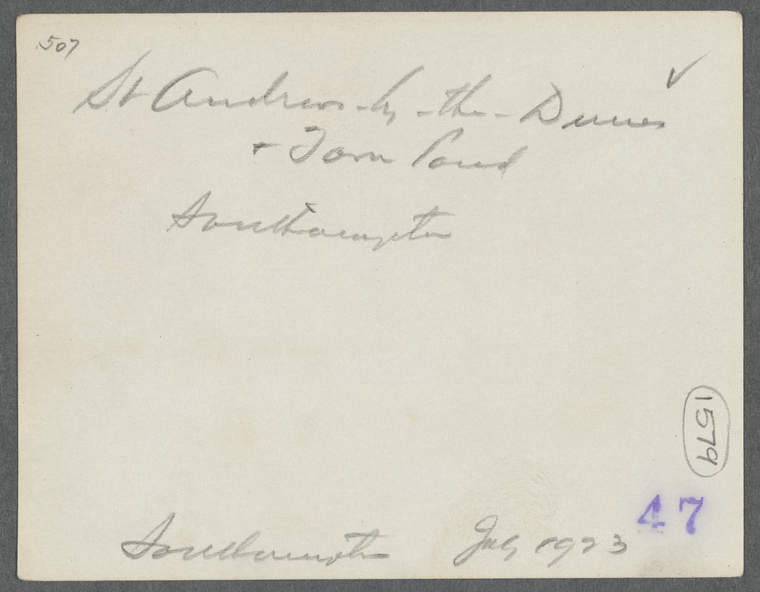 507
St Andrews-by-the-Dunes
+ Town Pond
Southampton
1579
47
Southampton July 1923